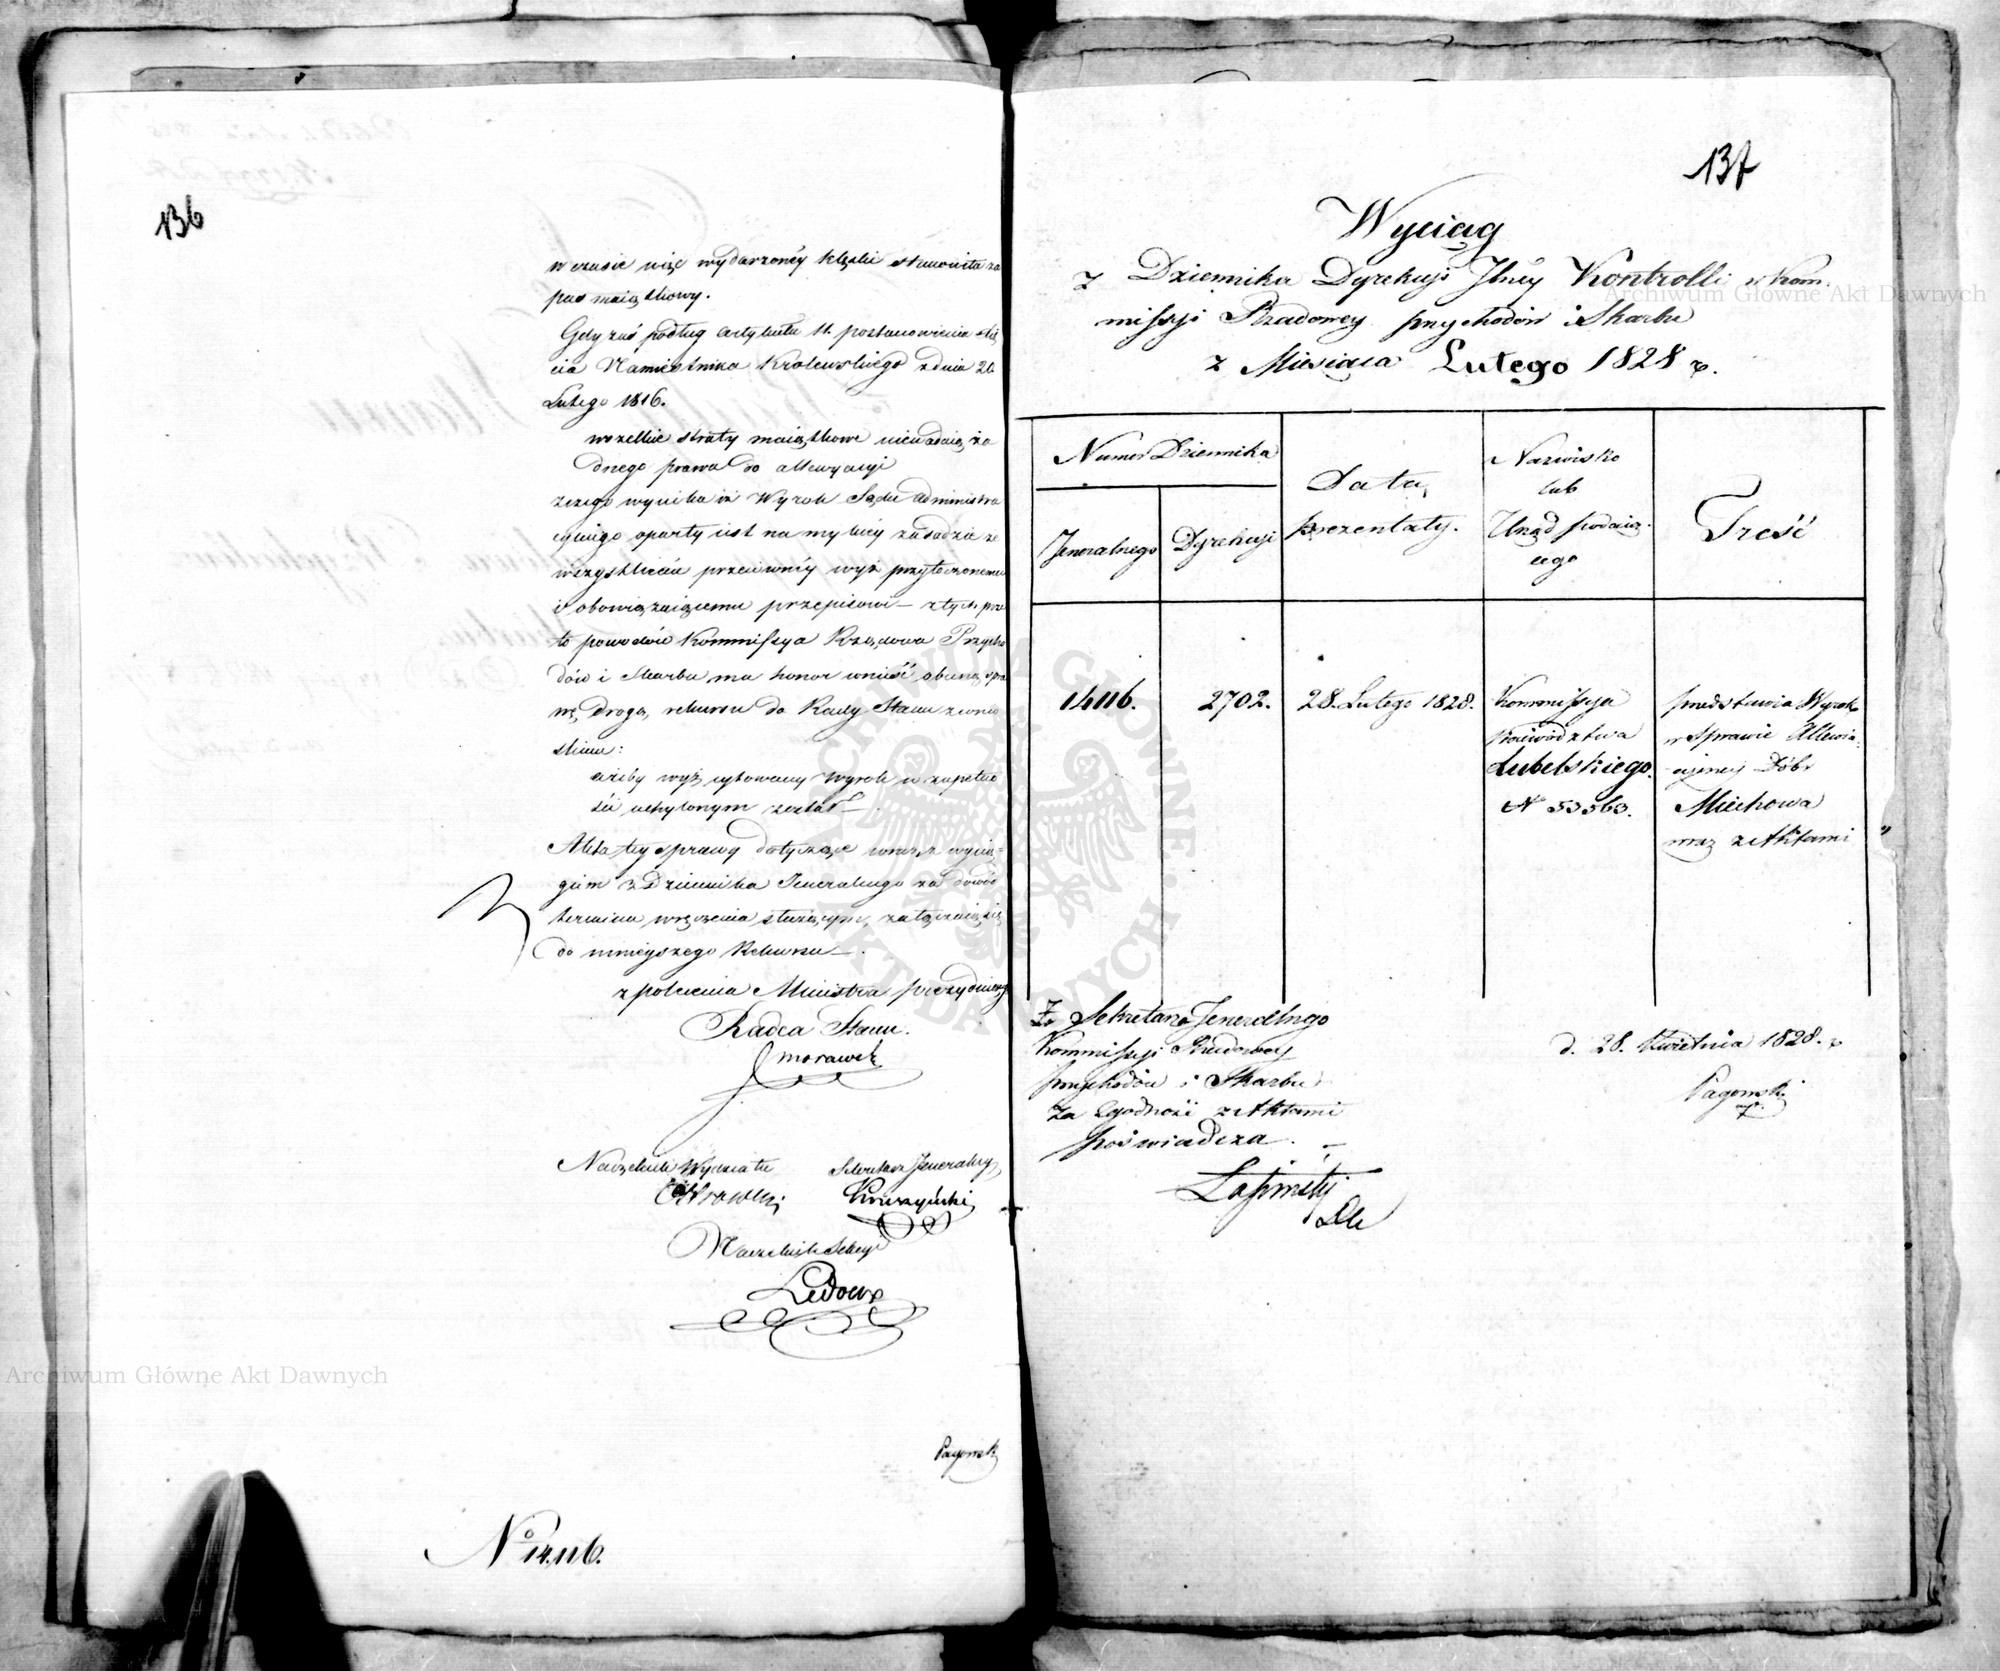 136
w czasie więc wydarzonéy klęski stanowiła za
pas maiątkowy.
Gdy zaś podług artykułu 11. postanowienia xię
cia Namiestnika Krolewskiego z dnia 26
Lutego 1816.
wszelkie straty maiątkowe nienadaią ża
dnego prawa do allewyacyi
z czego wynika iż Wyrok Sądu administra
cyinego oparty iest na mylnéy zasadzie ze
wszystkiém przeciwnéy wyż przytoczonemu
i obowiązuiącemu przepisowi — z tych prze
to powodów Kommissya Rządowa Przycho
dów i Skarbu ma honor wnieść obecną
drogą rekurs do Rady Stanu z wnio
skiem:
ażeby wyż cytowany Wyrok w zupełno
ści uchylonym został —
Akta tey sprawy dotyczące wraz z wycią=
giem z Dziennika Jeneralnego za dowód
termina wręczenia służącym, załączaią się
do ninieyszego Rekursu —.
z polecenia Ministra prezyduiącego
Radca Stanu.
Morawski
Naczelnik Wydziału Sekretarz Jeneralny
Kruszyński
Naczelnik Sekcyi
Ledoux
Pągowski
No 14116.
137
Wyciąg
z Dziennika Dyrekcyi Jlnéy Kontrolli w Kom
missyi Rządowey przychodów i Skarbu
z Miesiąca Lutego 1828 r.
Numer Dziennika
Jeneralnego
Dyrekcyi
Data
prezentaty.
Nazwisko
lub
Urząd podaią-
cego
Treść
14116.
2702.
28. Lutego 1828.
Kommissya
Woiewództwa
Lubelskiego.
N 53563.
przedstawia Wyrok
w sprawie Allewia=
cyinej Dóbr
Miechowa
wraz z Aktami "
Za Sekretarza Jeneralnego
Kommissyi Rządowey
przychodów i Skarbu
Za zgodność z Aktami
poświadcza. —
Łapiński
d. 28. Kwietnia 1828. r
Pągowski
Archiwum Główne Akt Dawnych
Archiwum Główne Akt Dawnych
ARCHIWUM GŁÓWNE AKT DAWNYCH